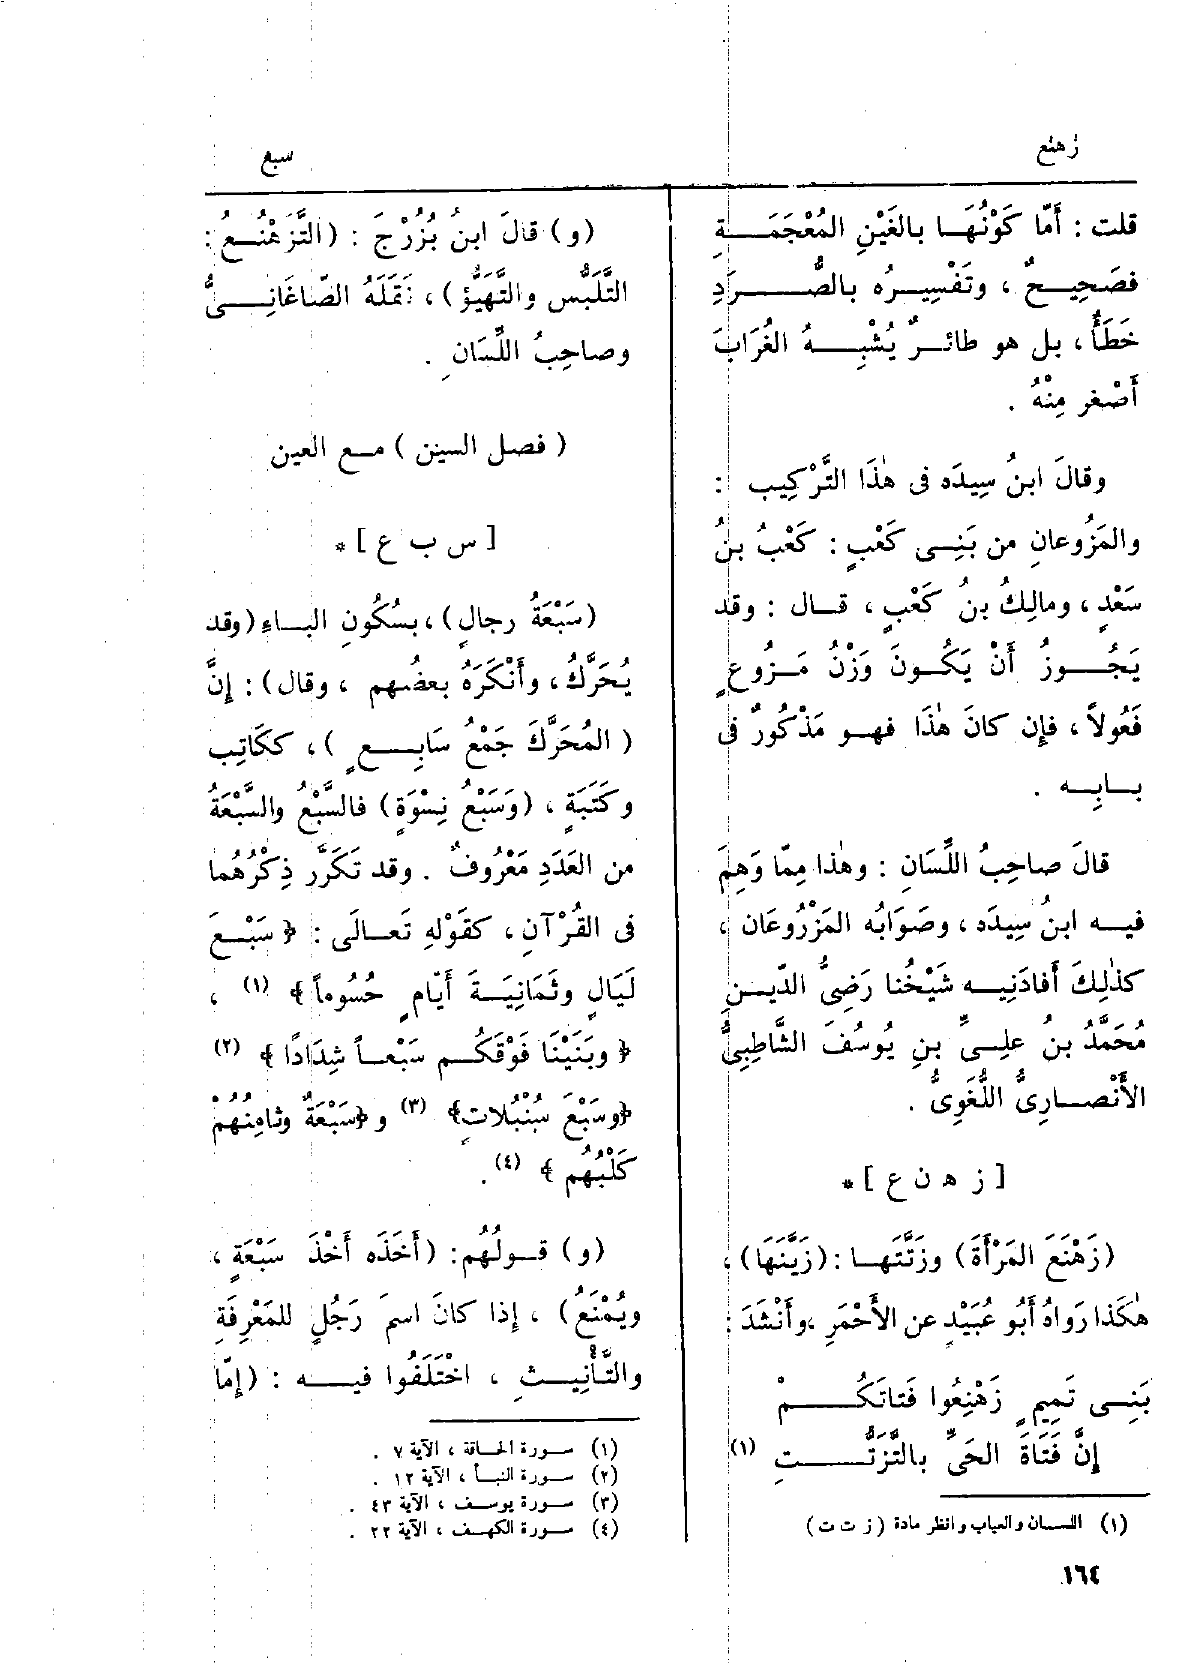 زهنع
سبع
قلت : أَمّا كَوْنُهَا بالغَيْنِ المُعْجَمَةِ
فصَحِيحٌ ، وتَفْسِيرُه بالصُّرَدِ
خَطَأٌ ، بل هو طائرٌ يُشْبِهُ الغُرَابَ
أَصْغر مِنْهُ .
وقالَ ابنُ سِيدَه فى هٰذَا التَّرْكِيب :
والمَزُوعانِ من بَنِى كَعْبٍ : كَعْبُ بنُ
سَعْدٍ ، ومالِكُ بنُ كَعْبٍ ، قال : وقد
يَجُوزُ أَنْ يَكُونَ وَزْنُ مَزُوعٍ
فَعُولاً ، فإِن كانَ هٰذَا فهو مَذْكُورٌ فى
بابِه .
قالَ صاحِبُ اللِّسَانِ : وهٰذا مِمّا وَهِمَ
فيه ابنُ سِيدَه ، وصَوَابُه المَزْرُوعَان ،
كذٰلِكَ أَفادَنِيه شَيْخُنا رَضِىُّ الدّينِ
مُحَمَّدُ بنُ علِىِّ بنِ يُوسُفَ الشَّاطِبِىُّ
الأَنْصارِىُّ اللُّغَوِىُّ .
[ ز هـ ن ع ] *
(زَهْنَعَ المَرْأَةَ) وزَتَّتَها : (زَيَّنَهَا) ،
هٰكَذا رَوَاهُ أَبُو عُبَيْدٍ عن الأَحْمَرِ ،وأَنْشَدَ :
بَنِى تَمِيمٍ زَهْنِعُوا فَتاتَكُمْ
إِنَّ فَتَاةَ الحَىِّ بالتَّزَتُّتِ (١)
(١) اللسان والعباب وانظر مادة (ز ت ت)
(و) قالَ ابنُ بُزُرْجَ : (التَّزَهْنُعُ :
التَّلَبُّس والتَّهَيُّؤ) ، نَقَلَهُ الصّاغَانِىُّ
وصاحِبُ اللِّسَانِ .
( فصل السين ) مع العين
[ س ب ع ] *
(سَبْعَةُ رجالٍ) ، بسُكُونِ الباءِ (وقد
يُحَرَّكُ ، وأَنْكَرَهُ بعضُهم ، وقال) : إِنَّ
( المُحَرَّكَ جَمْعُ سَابِعٍ ) ، ككَاتِب
وكَتَبَةٍ ، (وَسَبْعُ نِسْوَةٍ) فالسَّبْعُ والسَّبْعَةُ
من العَدَدِ مَعْرُوفٌ . وقد تَكَرَّر ذِكْرُهُما
فى القُرْآنِ ، كقَوْلهِ تَعالَى : ﴿ سَبْعَ
لَيَالٍ وثَمَانِيَةَ أَيّامٍ حُسُوماً﴾ (١) ،
﴿ وبَنَيْنَا فَوْقَكُم سَبْعاً شِدَادًا ﴾ (٢)
﴿وسَبْعَ سُنْبُلاتٍ﴾ (٣) و ﴿سَبْعَةٌ وثامِنُهُمْ
كَلْبُهُم ﴾ (٤) .
(و) قولُهُم : (أَخَذَه أَخْذَ سَبْعَةٍ ،
ويُمْنَعُ) ، إِذا كانَ اسمَ رَجُلٍ للمَعْرِفَةِ
والتَّأْنِيثِ ، اخْتَلَفُوا فيه : (إِمّا
(١) سورة الحاقة ، الآية ٧ .
(٢) سورة النبأ ، الآية ١٢ .
(٣) سورة يوسف ، الآية ٤٣ .
(٤) سورة الكهف ، الآية ٢٢ .
١٦٤